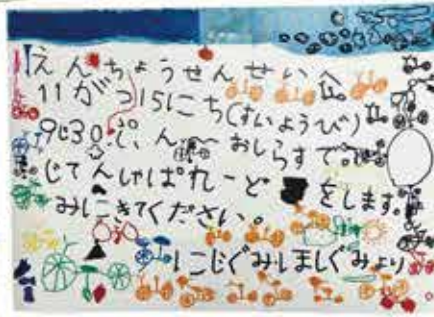 えんちょうせんせいへ
11がつ15にち(すいようび)
9じ30ぷん おしらすで。
じてんしゃぱれーど をします。
みにきてください。
にじぐみしましぐみより